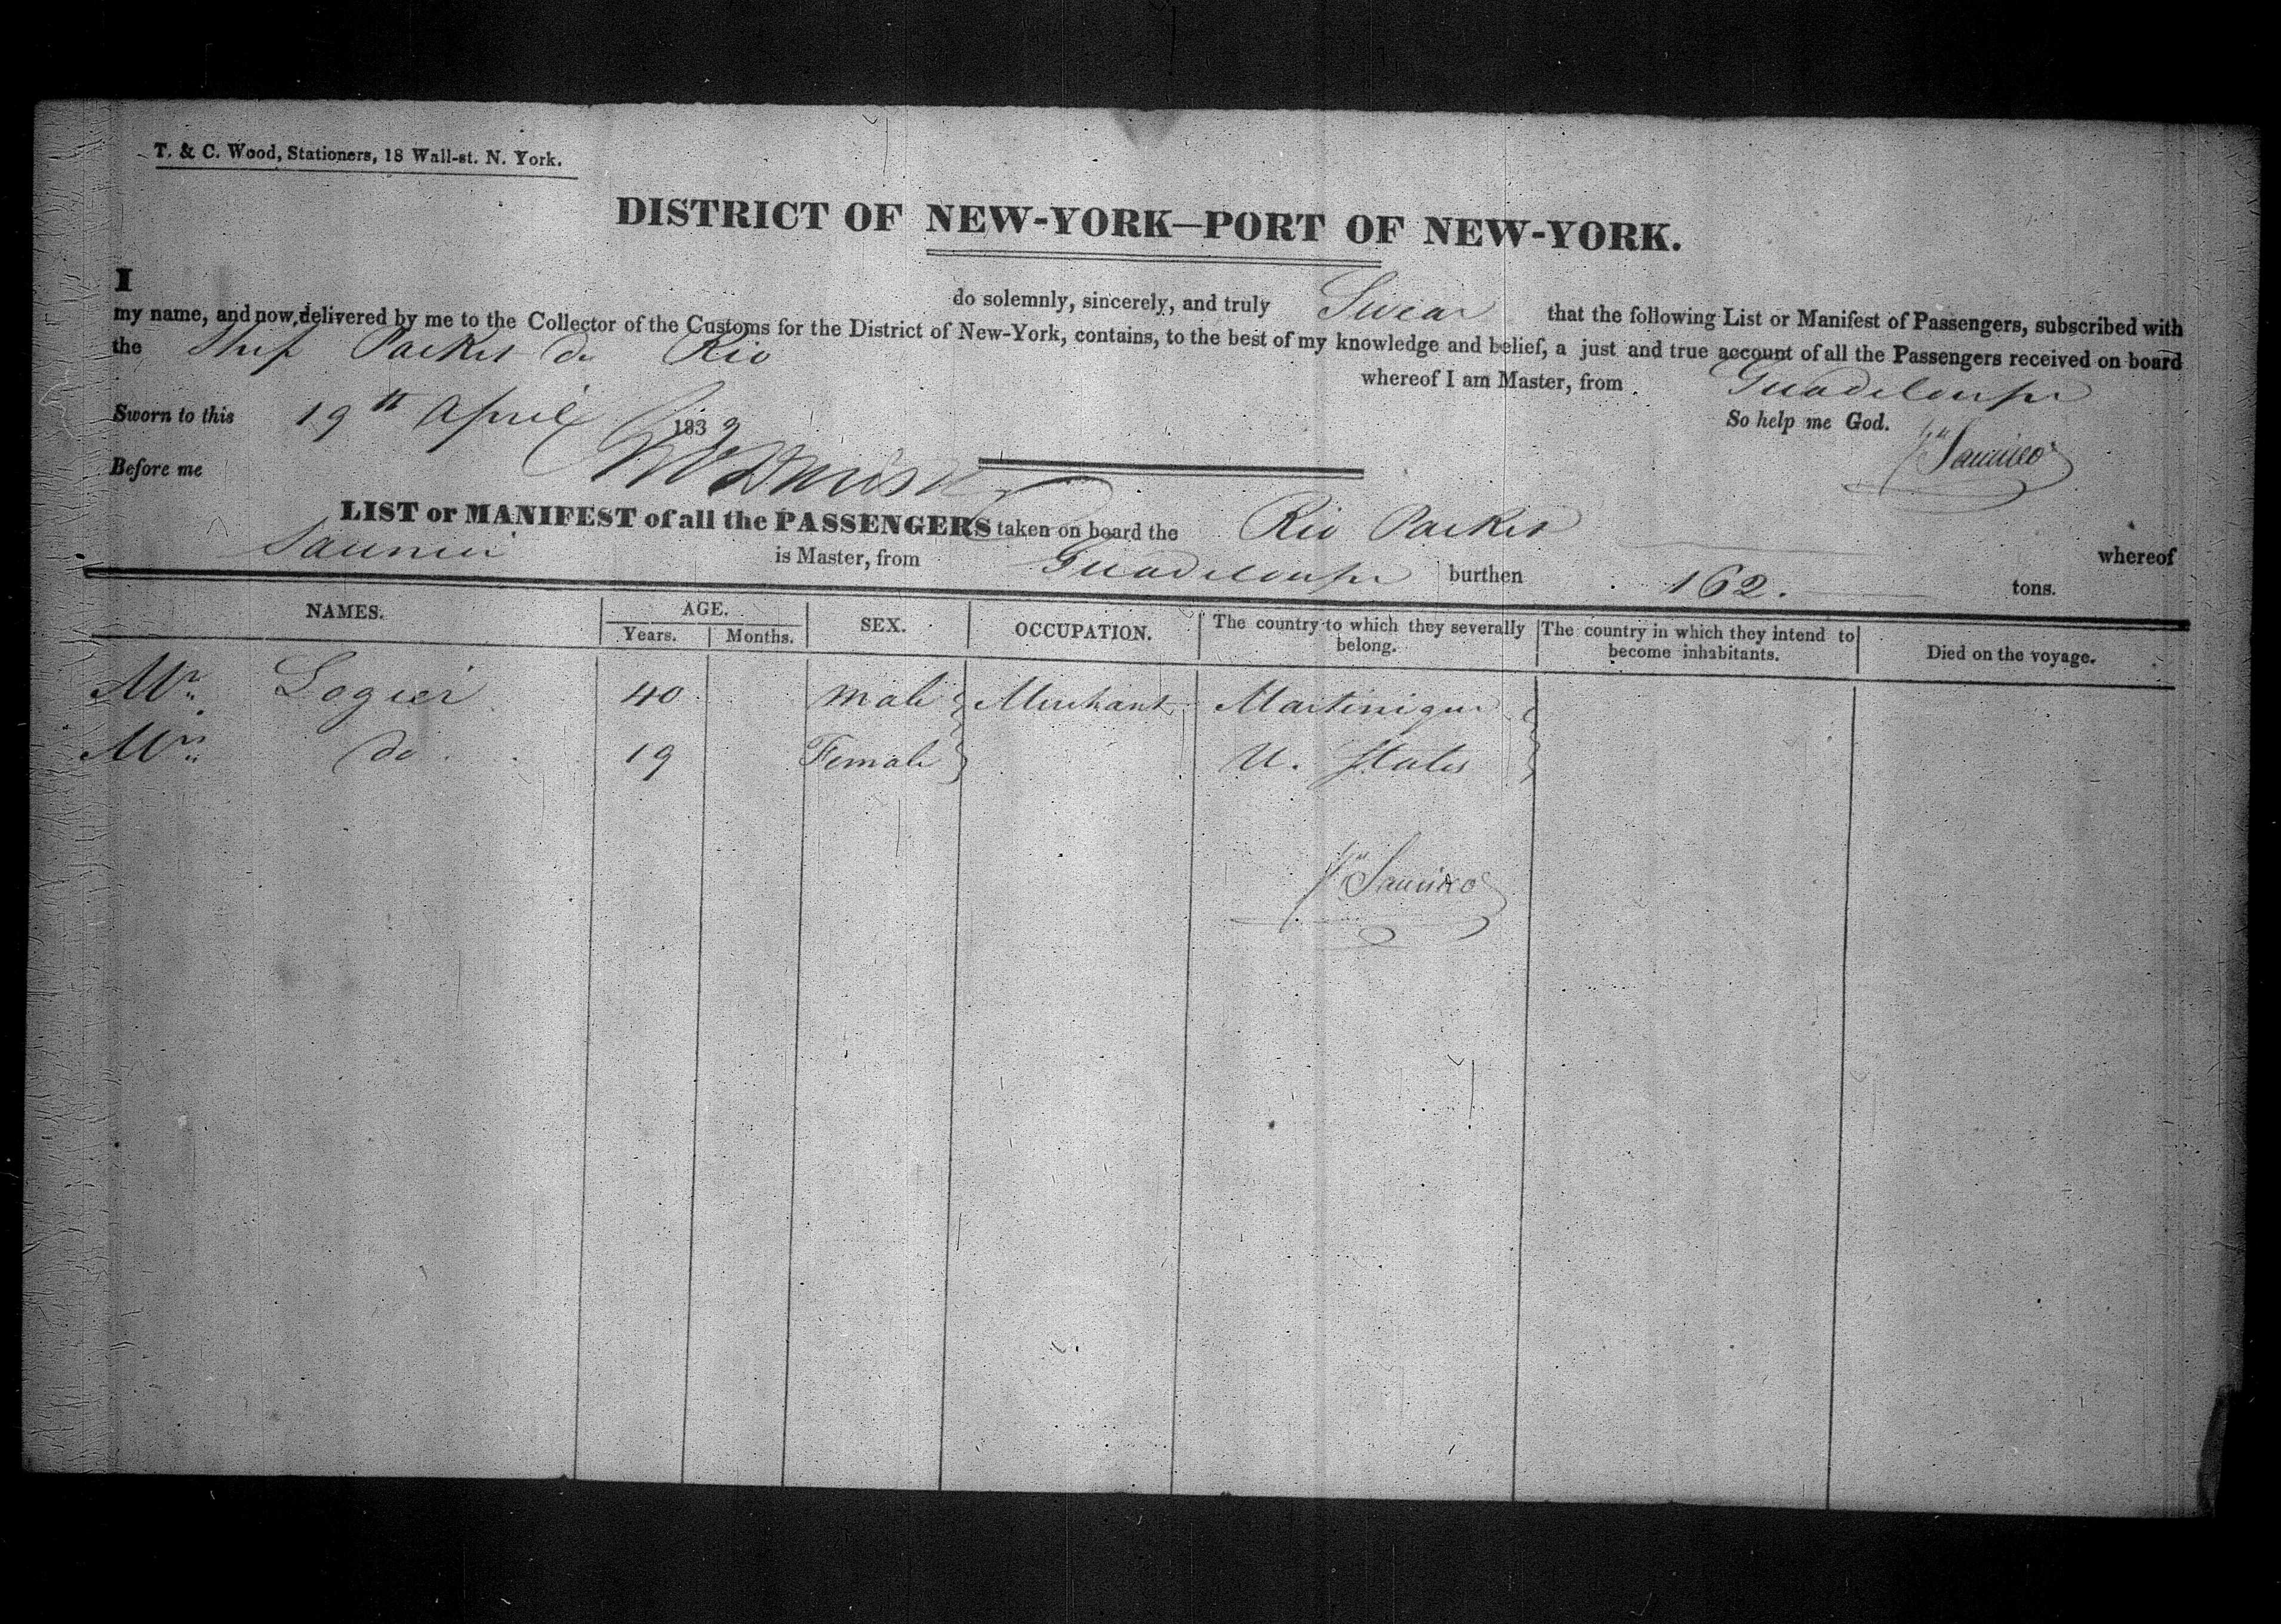 T. & C. Wood, Stationers, 18 Wall-st. N. York.
DISTRICT OF NEW-YORK—PORT OF NEW-YORK.
I do solemnly, sincerely, and truly Swear that the following List or Manifest of Passengers, subscribed with
my name, and now delivered by me to the Collector of the Customs for the District of New-York, contains, to the best of my knowledge and belief, a just and true account of all the Passengers received on board
the Ship Packet de Rio whereof I am Master, from Guadeloupe
Sworn to this 19th April 1839 So help me God.
Before me
LIST or MANIFEST of all the PASSENGERS taken on board the Rio Packet whereof
is Master, from Guadeloupe burthen 162. tons.
NAMES. AGE. SEX. OCCUPATION. The country to which they severally belong. The country in which they intend to become inhabitants. Died on the voyage.
Years. Months.
Mr. Logier 40 Male Merchant Martinique
Mrs. do 19 Female U. States